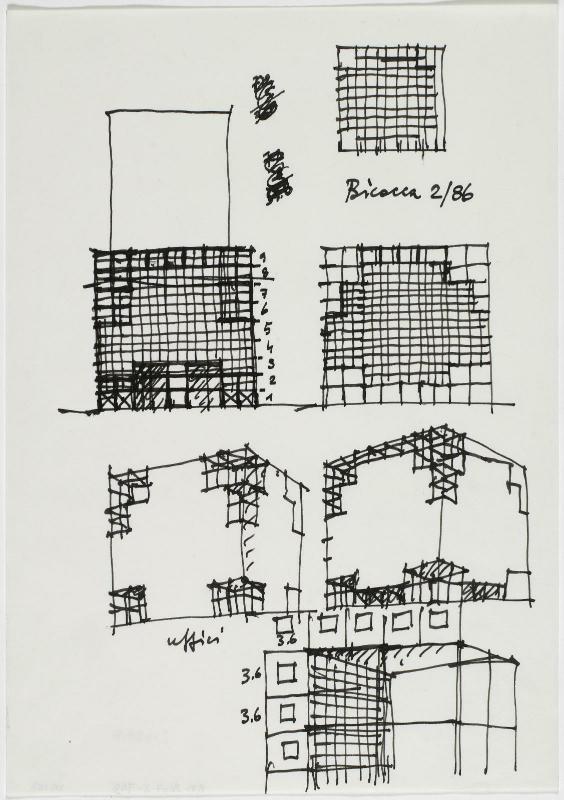 Bicocca 2/86
9
8
7
6
5
4
3
2
1
uffici
3.6
3.6
3.6